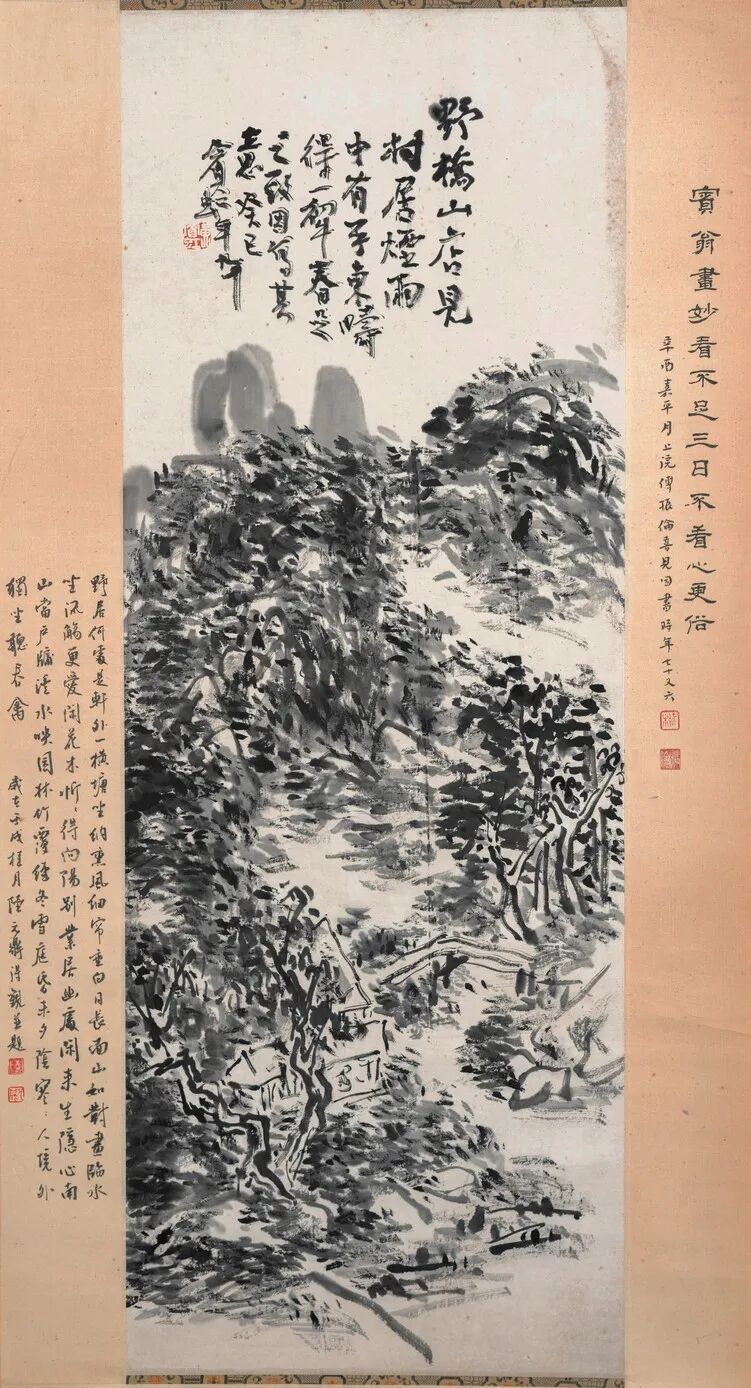 賓翁畫妙看不足三日不看心更俗
辛酉嘉平月上浣傅振倫喜見因書時年七十又六
野橋山店見
村居煙雨
中有事東疇
得一犁春足
之致圖寫其
意癸巳
賓虹年九十
野居何處是軒外一橫塘坐納熏風細帘垂白日長面山如對畫臨水
坐流觴更愛閑花木欣欣得向陽別業居幽處閑來生隱心南
山當戶牖灃水映園林竹覆經冬雪庭昏未夕陰寥寥人境外
獨坐聽春禽 歲在壬戌桂月陸元鼎淂觀並題